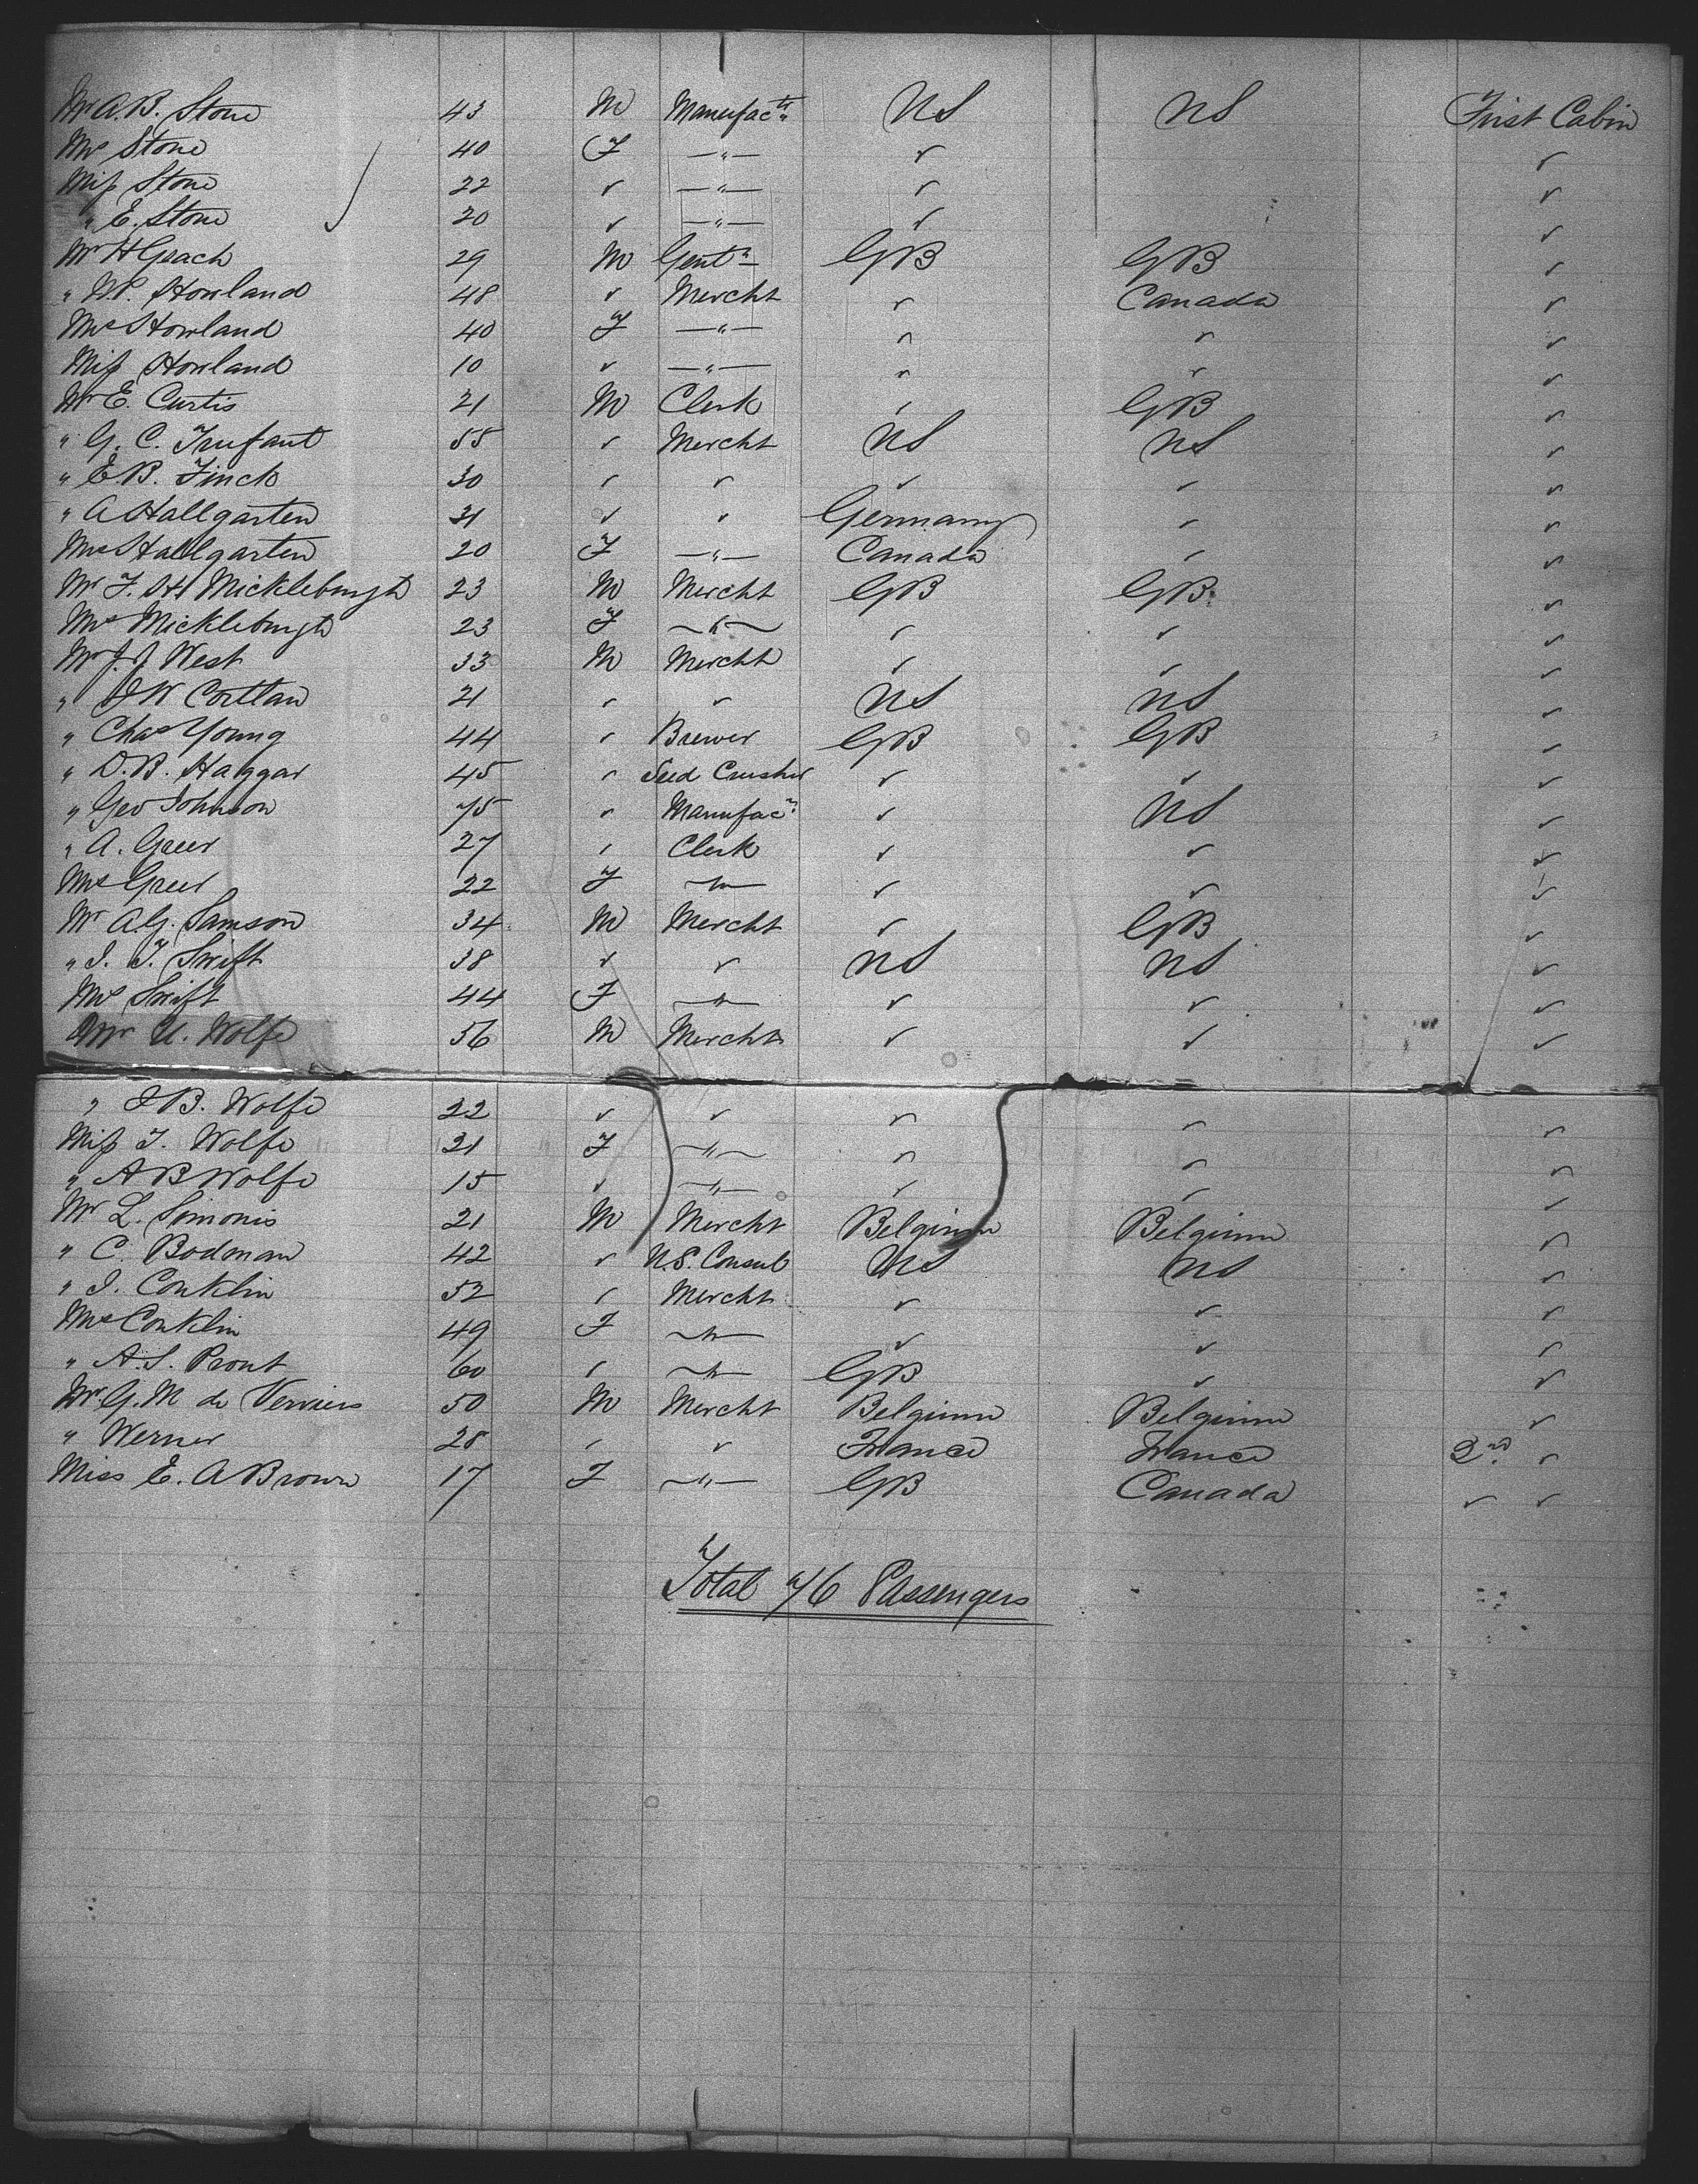 Mr A.B. Stone 43 M Manufactr US US First Cabin
Mrs Stone 40 F —"— ✓ ✓
Miss Stone 22 ✓ —"— ✓ ✓
" E. Stone 20 ✓ —"— ✓ ✓
Mr H Geach 29 M Gentn GB GB ✓
" W.P. Howland 48 ✓ Mercht ✓ Canada ✓
Mrs Howland 40 F —"— ✓ ✓ ✓
Miss Howland 10 ✓ —"— ✓ ✓ ✓
Mr E. Curtis 21 M Clerk ✓ GB ✓
" G. C. Trufant 55 ✓ Mercht US US ✓
" E.B. Finck 30 ✓ ✓ ✓ ✓ ✓
" A Hallgarten 31 ✓ ✓ Germany ✓ ✓
Mrs Hallgarten 20 F —"— Canada ✓ ✓
Mr F. H Mickleburgh 23 M Mercht GB GB ✓
Mrs Mickleburgh 23 F —"— ✓ ✓ ✓
Mr J.J West 33 M Mercht ✓ ✓ ✓
" J W Cortlan 21 ✓ ✓ US US ✓
" Chas Young 44 ✓ Brewer GB GB ✓
" O.B. Haggar 45 ✓ Seed Crusher ✓ ✓ ✓
" Geo Johnson 75 ✓ Manufacr ✓ US ✓
" A. Greer 27 ✓ Clerk ✓ ✓ ✓
Mrs Greer 22 F —"— ✓ ✓ ✓
Mr A.G. Samson 34 M Mercht ✓ GB ✓
" I. T. Swift 38 ✓ ✓ US US ✓
Mrs Swift 44 F —"— ✓ ✓ ✓
Mr U. Wolfe 56 M Mercht ✓ ✓ ✓
" J B. Wolfe 22 ✓ ✓ ✓ ✓ ✓
Miss T. Wolfe 21 F —"— ✓ ✓ ✓
" A B Wolfe 15 ✓ —"— ✓ ✓ ✓
Mr L. Simonis 21 M Mercht Belgium Belgium ✓
" C. Bodman 42 ✓ U.S. Consul US US ✓
" I. Conklin 52 ✓ Mercht ✓ ✓ ✓
Mrs Conklin 49 F —"— ✓ ✓ ✓
" A.S. Prout 60 ✓ —"— GB ✓ ✓
Mr G.M de Verviers 50 M Mercht Belgium Belgium ✓
" Werner 28 ✓ ✓ France France 2nd ✓
Miss E. A Brown 17 F —"— GB Canada ✓ ✓
Total 76 Passengers